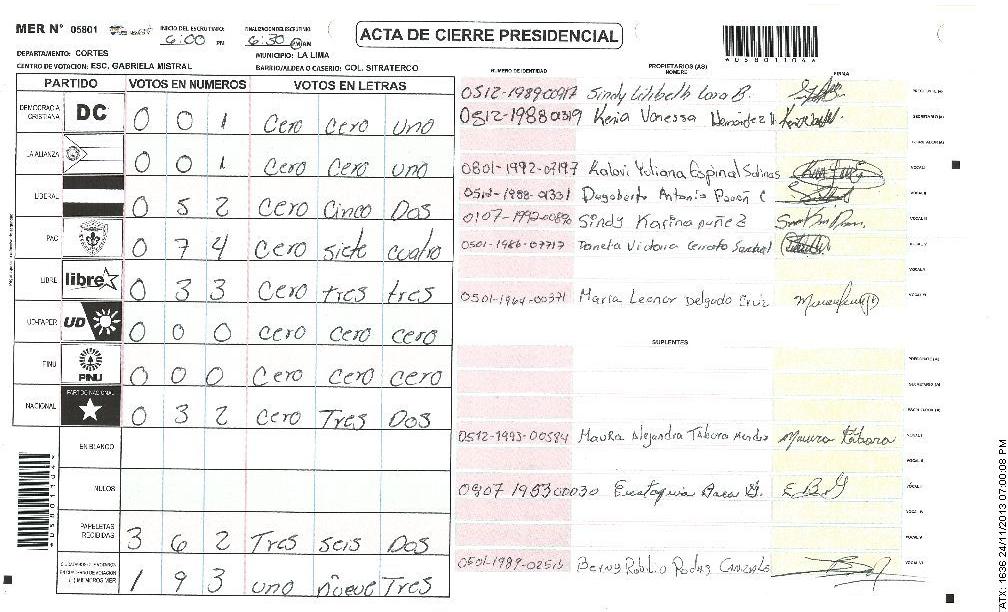 MER N° 05801
INICIO DEL ESCRUTINIO 6:00 PM
FINALIZACION DEL ESCRUTINIO 6:30
ACTA DE CIERRE PRESIDENCIAL
DEPARTAMENTO: CORTES
MUNICIPIO: LA LIMA
CENTRO DE VOTACION: ESC. GABRIELA MISTRAL
BARRIO/ALDEA O CASERIO: COL. SITRATERCO
PARTIDO VOTOS EN NUMEROS VOTOS EN LETRAS
DEMOCRACIA CRISTIANA DC 0 0 1 Cero Cero uno
LA ALIANZA 0 0 1 Cero Cero uno
LIBERAL 0 5 2 Cero Cinco Dos
PAC 0 7 4 Cero siete cuatro
LIBRE libre 0 3 3 Cero tres tres
UD-FAPER UD 0 0 0 cero cero cero
PINU PINU 0 0 0 Cero cero cero
NACIONAL PARTIDO NACIONAL 0 3 2 cero Tres Dos
EN BLANCO
NULOS
PAPELETAS RECIBIDAS 3 6 2 Tres seis Dos
1 9 3 uno nueve Tres
NUMERO DE IDENTIDAD
PROPIETARIOS (AS)
NOMBRE
FIRMA
*058011064*
0512-1989-00917 Sindy Lilibeth Lara B.
0512-1988-01319 Kenia Vanessa Hernández
0801-1992-07197 Kalovi Yuliana Espinal Salinas
Dagoberto Antonio Pavón C
0107-1992-00896 Sindy Karina nuñez
0501-1986-07717 Victoria Cerrato
0501-1964-00371 María Leonor Delgado Cruz
SUPLENTES
0512-1993-00584 Maura Alejandra Tábora Mendes Maura Tábora
E B G
0501-1989-02515
ATX: 1636 24/11/2013 07:00:08 PM